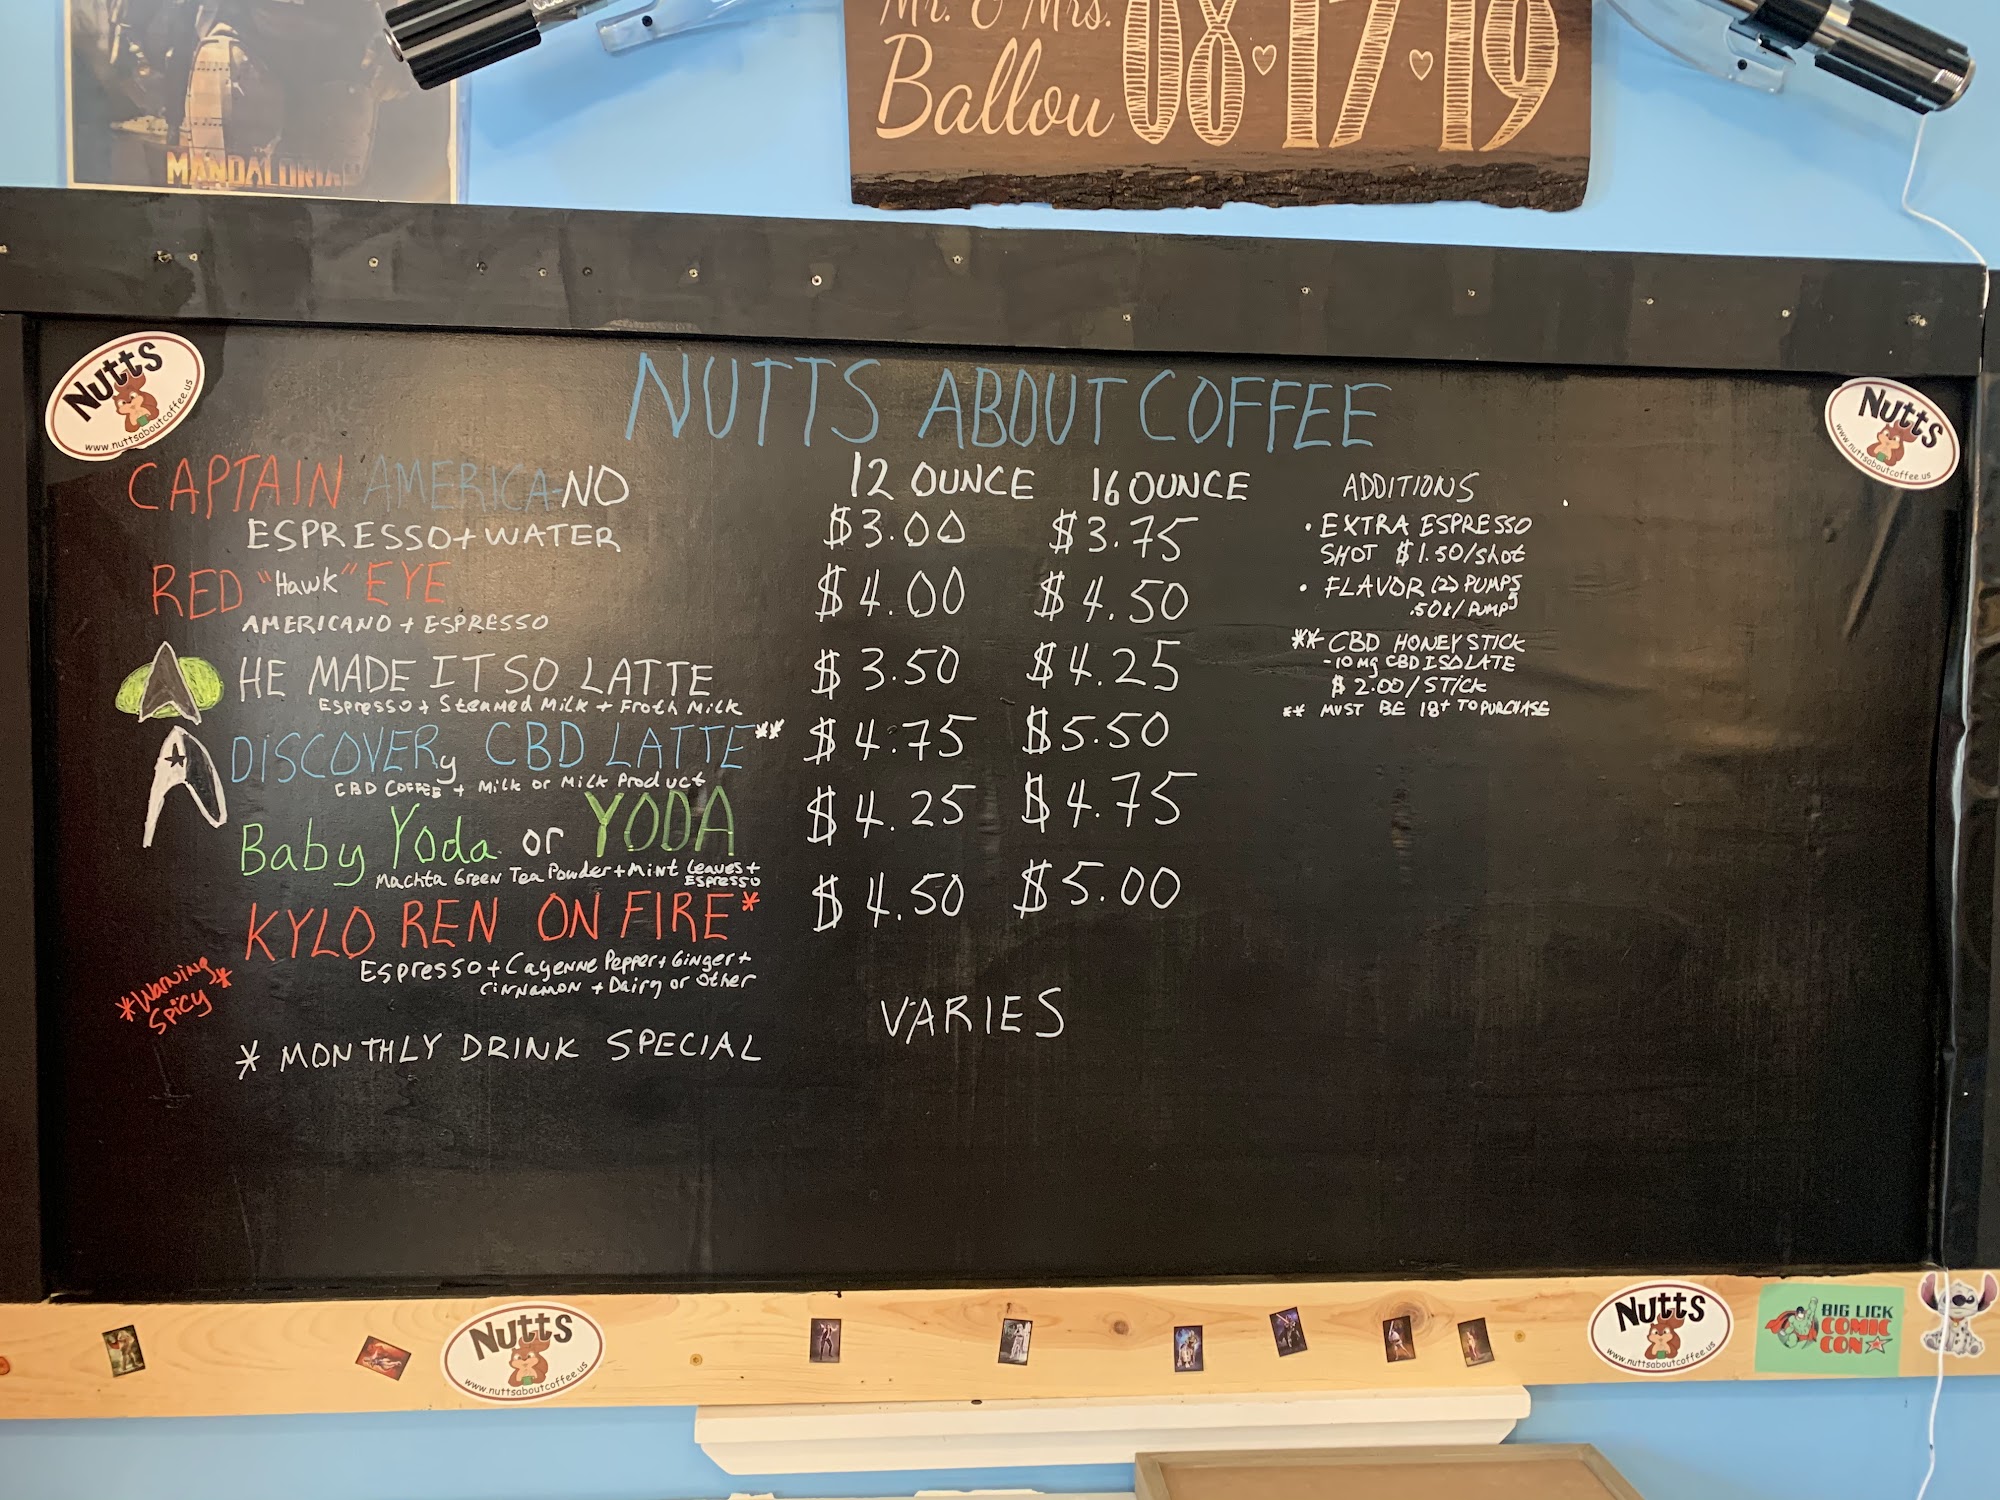 MANDALORIAN
Mr. & Mrs.
Ballou
08 ♡ 17 ♡ 19
Nutts
www.nuttsaboutcoffee.us
NUTTS ABOUT COFFEE
Nutts
www.nuttsaboutcoffee.us
12 OUNCE 16 OUNCE
CAPTAIN AMERICA-NO $3.00 $3.75
ESPRESSO + WATER
RED "Hawk" EYE $4.00 $4.50
AMERICANO + ESPRESSO
HE MADE IT SO LATTE $3.50 $4.25
Espresso + Steamed Milk + Froth Milk
DiSCOVERy CBD LATTE** $4.75 $5.50
CBD COFFEE + Milk or Milk Product
Baby Yoda or YODA $4.25 $4.75
Machta Green Tea Powder + Mint Leaves +
Espresso
KYLO REN ON FIRE* $4.50 $5.00
Espresso + Cayenne Pepper + Ginger +
Cinnamon + Dairy or Other
*Warning
Spicy*
* MONTHLY DRINK SPECIAL VARIES
ADDITIONS
• EXTRA ESPRESSO
SHOT $1.50/shot
• FLAVOR (2) PUMPS
.50¢/PUMPS
** CBD HONEY STICK
-10 mg CBD ISOLATE
$2.00/STICK
** MUST BE 18+ TO PURCHASE
Nutts
www.nuttsaboutcoffee.us
Nutts
www.nuttsaboutcoffee.us
BIG LICK
COMIC
CON